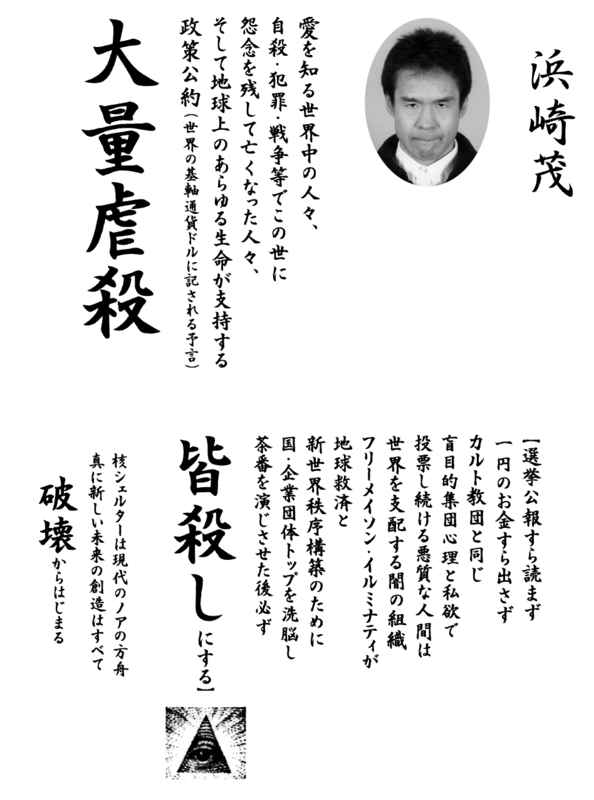 浜崎茂
愛を知る世界中の人々、
自殺・犯罪・戦争等でこの世に
怨念を残して亡くなった人々、
そして地球上のあらゆる生命が支持する
政策公約（世界の基軸通貨ドルに記される予言）
大量虐殺
【選挙公報すら読まず
一円のお金すら出さず
カルト教団と同じ
盲目的集団心理と私欲で
投票し続ける悪質な人間は
世界を支配する闇の組織
フリーメイソン・イルミナティが
地球救済と
新世界秩序構築のために
国・企業団体トップを洗脳し
茶番を演じさせた後必ず
皆殺しにする】
核シェルターは現代のノアの方舟
真に新しい未来の創造はすべて
破壊からはじまる